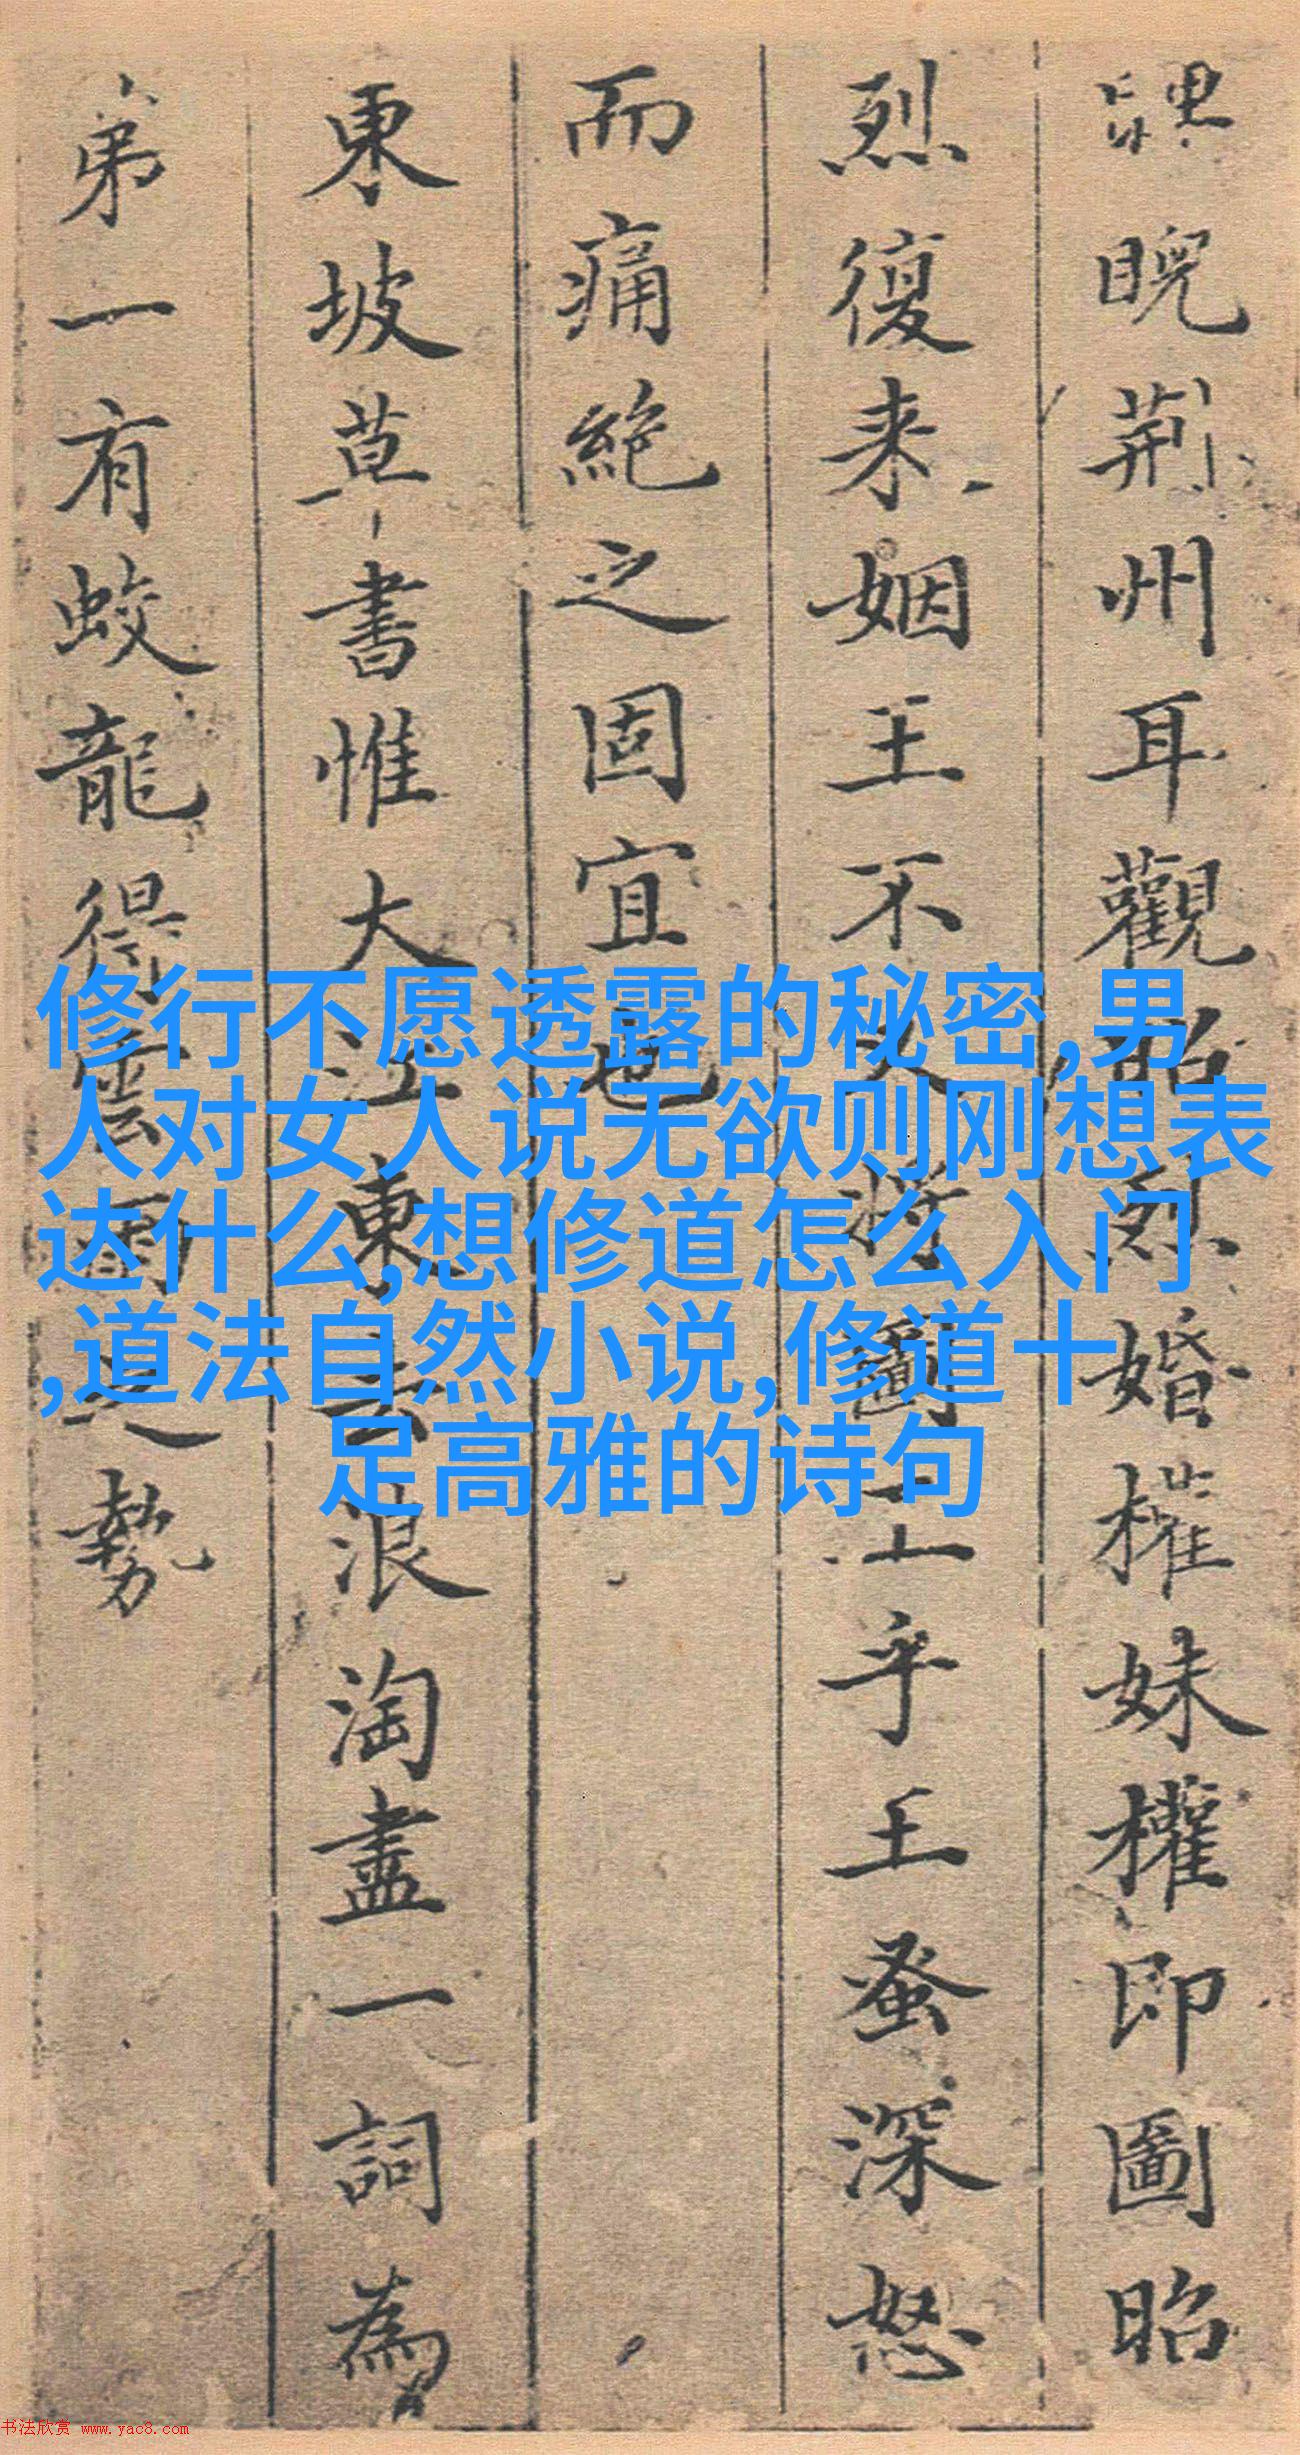 睨荆州耳觀昭烈婚權妹權即圖昭
烈復来姻王不将圖王乎王蚤深怒
而痛絶之固宜也
東坡草書惟大江東去浪淘盡一詞為
弟一有蛟龍得雲雨之勢
修行不愿透露的秘密,男
人对女人说无欲则刚想表
达什么,想修道怎么入门
,道法自然小说,修道十
足高雅的诗句
书法欣赏 www.yac8.com